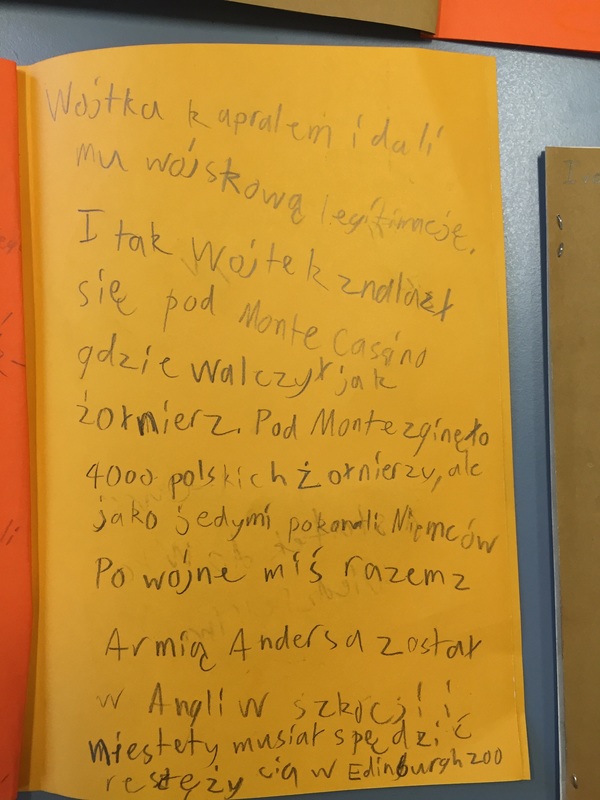 Wojtka kapralem i dali
mu wojskową legitimację.
I tak Wojtek znalazł
się pod Monte Casino
gdzie walczył jak
żołnierz. Pod Monte zginęło
4000 polskich żołnierzy, ale
jako jedymi pokonali Niemców
Po wojne miś razem z
Armią Andersa został
w Angli w szkocji i
niestety musiał spędzić
resztę ży cia w Edinburgh zoo